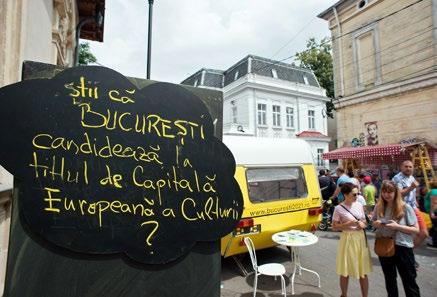 știi că
BUCUREȘTI
candidează la
titlul de Capitală
Europeană a Culturii
?
www.bucuresti2021.ro